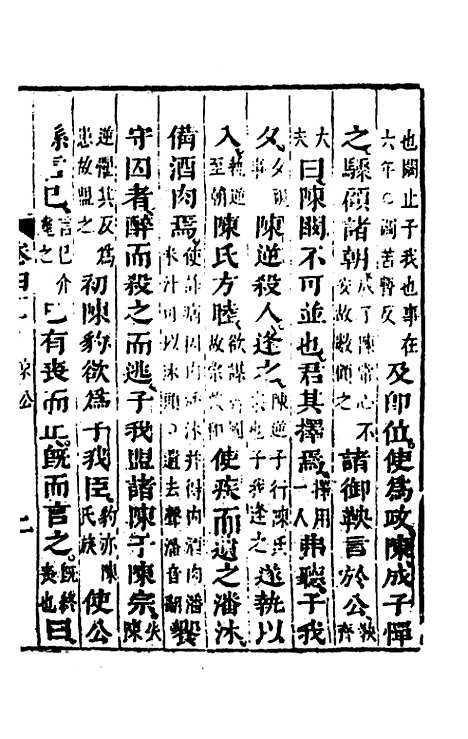 也闞止子我也事在六年○闞苦暫反及卽位使爲政陳成子憚
之驟顧諸朝成子陳常心不安故數顧之諸御鞅言於公鞅齊
大夫曰陳闞不可並也君其擇焉擇用一人弗聽子我
夕夕視事陳逆殺人逢之陳逆子行陳氏宗也子我逢之遂執以
入執逆至朝陳氏方睦欲謀齊國故宗族和使疾而遺之潘沐
備酒肉焉使詐病因內潘沐并得內酒肉潘米汁可以沐頭○遺去聲潘音翻饗
守囚者醉而殺之而逃子我盟諸陳于陳宗失陳
逆懼其反爲患故盟之初陳豹欲爲子我臣豹亦陳氏族使公
孫言已言已介達之已有喪而止旣而言之旣終喪也曰